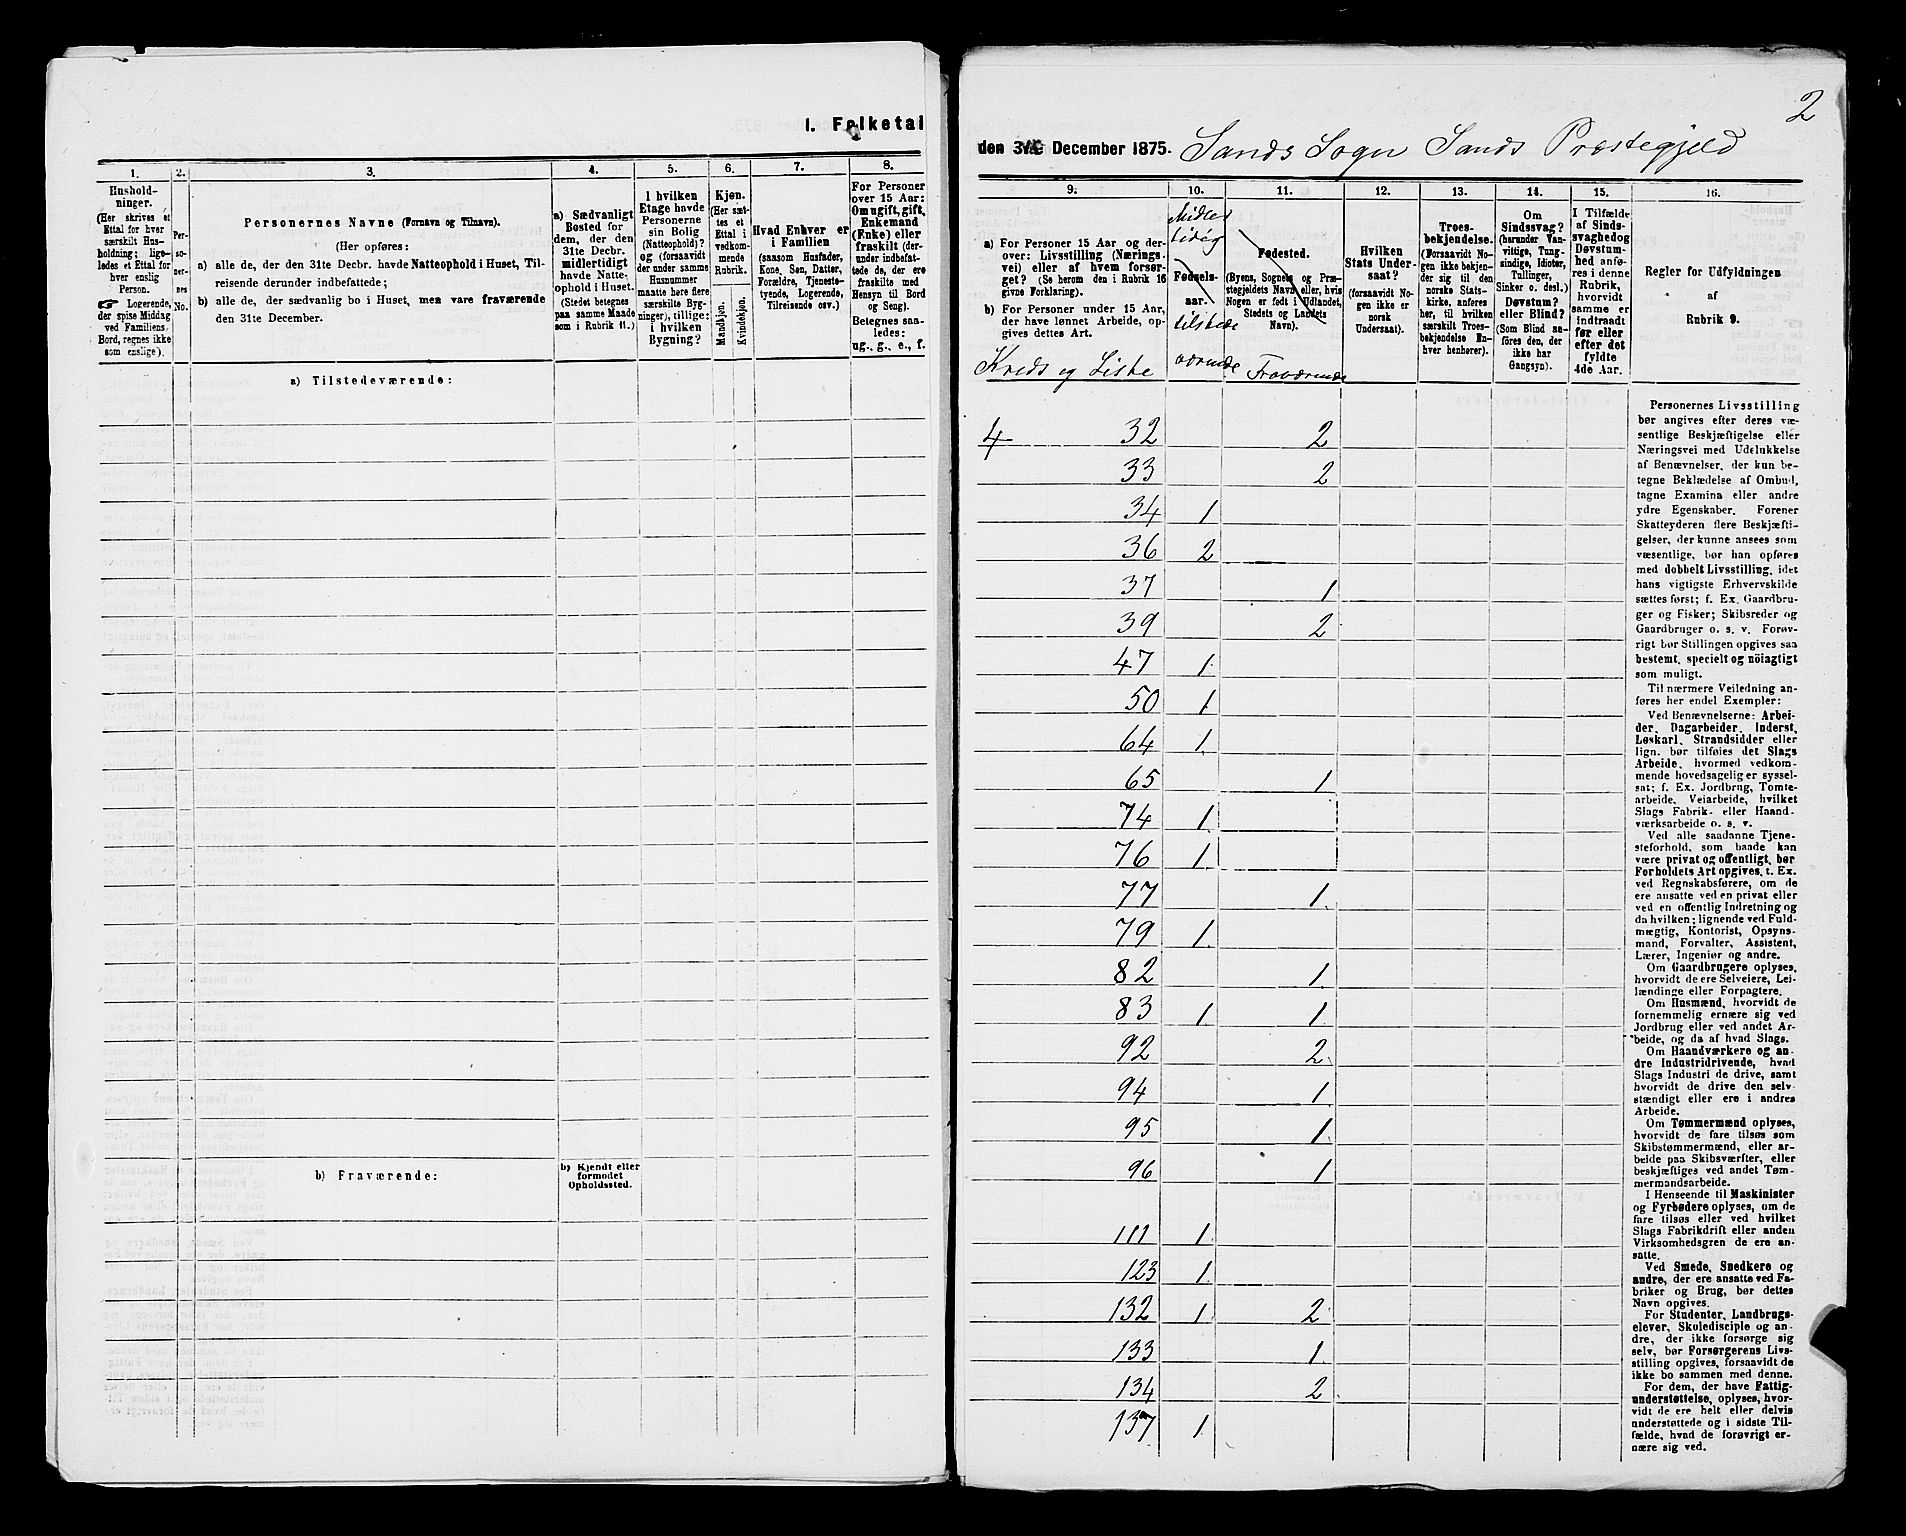 I. Folketal
1.
Hushold-
ninger.
(Her skrives et
Ettal for hver
særskilt Hus-
holdning; lige-
ledes et Ettal for
hver enslig
Person.
☞ Logerende,
der spise Middag
ved Familiens
Bord, regnes ikke
som enslige).
2.
Per-
so-
ner-
nes
No.
3.
Personernes Navne (Fornavn og Tilnavn).
(Her opføres:
a) alle de, der den 31te Decbr. havde Natteophold i Huset, Til-
reisende derunder indbefattede;
b) alle de, der sædvanlig bo i Huset, men vare fraværende
den 31te December.
4.
a) Sædvanligt
Bosted for
dem, der den
31te Decbr.
midlertidigt
havde Natte-
ophold i Huset.
(Stedet betegnes
paa samme Maade
som i Rubrik 11.)
5.
I hvilken
Etage havde
Personerne
sin Bolig
(Natteophold)?
og (forsaavidt
der under samme
Husnummer
maatte høre flere
særskilte Byg-
ninger), tillige:
i hvilken
Bygning?
6.
Kjøn.
(Her sæt-
tes et
Ettal i
vedkom-
mende
Rubrik.
Mandkjøn.
Kvindekjøn.
7.
Hvad Enhver er
i Familien
(saasom Husfader,
Kone, Søn, Datter,
Forældre, Tjeneste-
tyende, Logerende,
Tilreisende osv.)
8.
For Personer
over 15 Aar:
Om ugift, gift,
Enkemand
(Enke) eller
fraskilt (der-
under indbefat-
tede de, der ere
fraskilte med
Hensyn til Bord
og Seng).
Betegnes saa-
ledes:
ug., g., e., f.
a) Tilstedeværende:
b) Fraværende:
b) Kjendt eller
formodet
Opholdssted.
2
den 31te December 1875. Sands Sogn Sands Præstegjeld
9.
a) For Personer 15 Aar og der-
over: Livsstilling (Nærings-
vei) eller af hvem forsør-
get? (Se herom den i Rubrik 16
givne Forklaring).
b) For Personer under 15 Aar,
der have lønnet Arbeide, op-
gives dettes Art.
Kreds og Liste
10.
Midler
tidig
Fødsels-
aar.
tilstede
værende
11.
Fødested.
(Byens, Sognets og Præ-
stegjeldets Navn, eller, hvis
Nogen er født i Udlandet,
Stedets og Landets
Navn).
Fraværende
12.
Hvilken
Stats Under-
saat?
(forsaavidt No-
gen ikke er
norsk
Undersaat).
13.
Troes-
bekjendelse.
(Forsaavidt No-
gen ikke bekjen-
der sig til den
norske Stats-
kirke, anføres
her, til hvilken
særskilt Troes-
bekjendelse En-
hver henhører).
14.
Om
Sindssvag?
(herunder Van-
vittige, Tung-
sindige, Idioter,
Tullinger,
Sinker o. desl.)
Døvstum?
eller Blind?
(Som Blind an-
føres den, der
ikke har
Gangsyn).
15.
I Tilfælde
af Sinds-
svaghed og
Døvstum-
hed anfø-
res i denne
Rubrik,
hvorvidt
samme er
indtraadt
før eller
efter det
fyldte
4de Aar.
16.
Regler for Udfyldningen
af
Rubrik 9.
4 32 2
33 2
34 1
36 2
37 1
39 2
47 1.
50 1.
64 1.
65 1
74 1.
76 1.
77 1.
79 1.
82 1.
83 1. 1.
92 2.
94 1
95 1.
96 1
111 1.
123 1.
132 1. 2.
133 1.
134 2.
137. 1.
Personernes Livsstilling
bør angives efter deres væ-
sentlige Beskjæftigelse eller
Næringsvei med Udelukkelse
af Benævnelser, der kun be-
tegne Beklædelse af Ombud,
tagne Examina eller andre
ydre Egenskaber. Forener
Skatteyderen flere Beskjæfti-
gelser, der kunne ansees som
væsentlige, bør han opføres
med dobbelt Livsstilling, idet
hans vigtigste Erhvervskilde
sættes først; f. Ex. Gaardbru-
ger og Fisker; Skibsreder og
Gaardbruger o. s. v. Forøv-
rigt bør Stillingen opgives saa
bestemt, specielt og nöiagtigt
som muligt.
Til nærmere Veiledning an-
føres her endel Exempler:
Ved Benævnelserne: Arbei-
der, Dagarbeider, Inderst,
Løskarl, Strandsidder eller
lign. bør tilføies det Slags
Arbeide, hvormed vedkom-
mende hovedsagelig er syssel-
sat; f. Ex. Jordbrug, Tomte-
arbeide, Veiarbeide, hvilket
Slags Fabrik- eller Haand-
værksarbeide o. s. v.
Ved alle saadanne Tjene-
steforhold, som baade kan
være privat og offentligt, bør
Forholdets Art opgives, t. Ex.
ved Regnskabsførere, om de
ere ansatte ved en privat eller
ved en offentlig Indretning og
da hvilken; lignende ved Fuld-
mægtig, Kontorist, Opsyns-
mand, Forvalter, Assistent,
Lærer, Ingeniør og andre.
Om Gaardbrugere oplyses,
hvorvidt de ere Selveiere, Lei-
lændinge eller Forpagtere.
Om Husmænd, hvorvidt de
fornemmelig ernære sig ved
Jordbrug eller ved andet Ar-
beide, og da af hvad Slags.
Om Haandværkere og an-
dre Industridrivende, hvad
Slags Industri de drive, samt
hvorvidt de drive den selv-
stændigt eller ere i andres
Arbeide.
Om Tømmermænd oplyses,
hvorvidt de fare tilsøs som
Skibstømmermænd, eller ar-
beide paa Skibsværfter, eller
beskjæftiges ved andet Tøm-
mermandsarbeide.
I Henseende til Maskinister
og Fyrbødere oplyses, om de
fare tilsøs eller ved hvilket
Slags Fabrikdrift eller anden
Virksomhedsgren de ere an-
satte.
Ved Smede, Snedkere og
andre, der ere ansatte ved Fa-
briker og Brug, bør dettes
Navn opgives.
For Studenter, Landbrugs-
elever, Skoledisciple og an-
dre, der ikke forsørge sig
selv, bør Forsørgerens Livs-
stilling opgives, forsaavidt de
ikke bo sammen med denne.
For dem, der have Fattig-
understøttelse, oplyses, hvor-
vidt de ere helt eller delvis
understøttede og i sidste Til-
fælde, hvad de forøvrigt er-
nære sig ved.